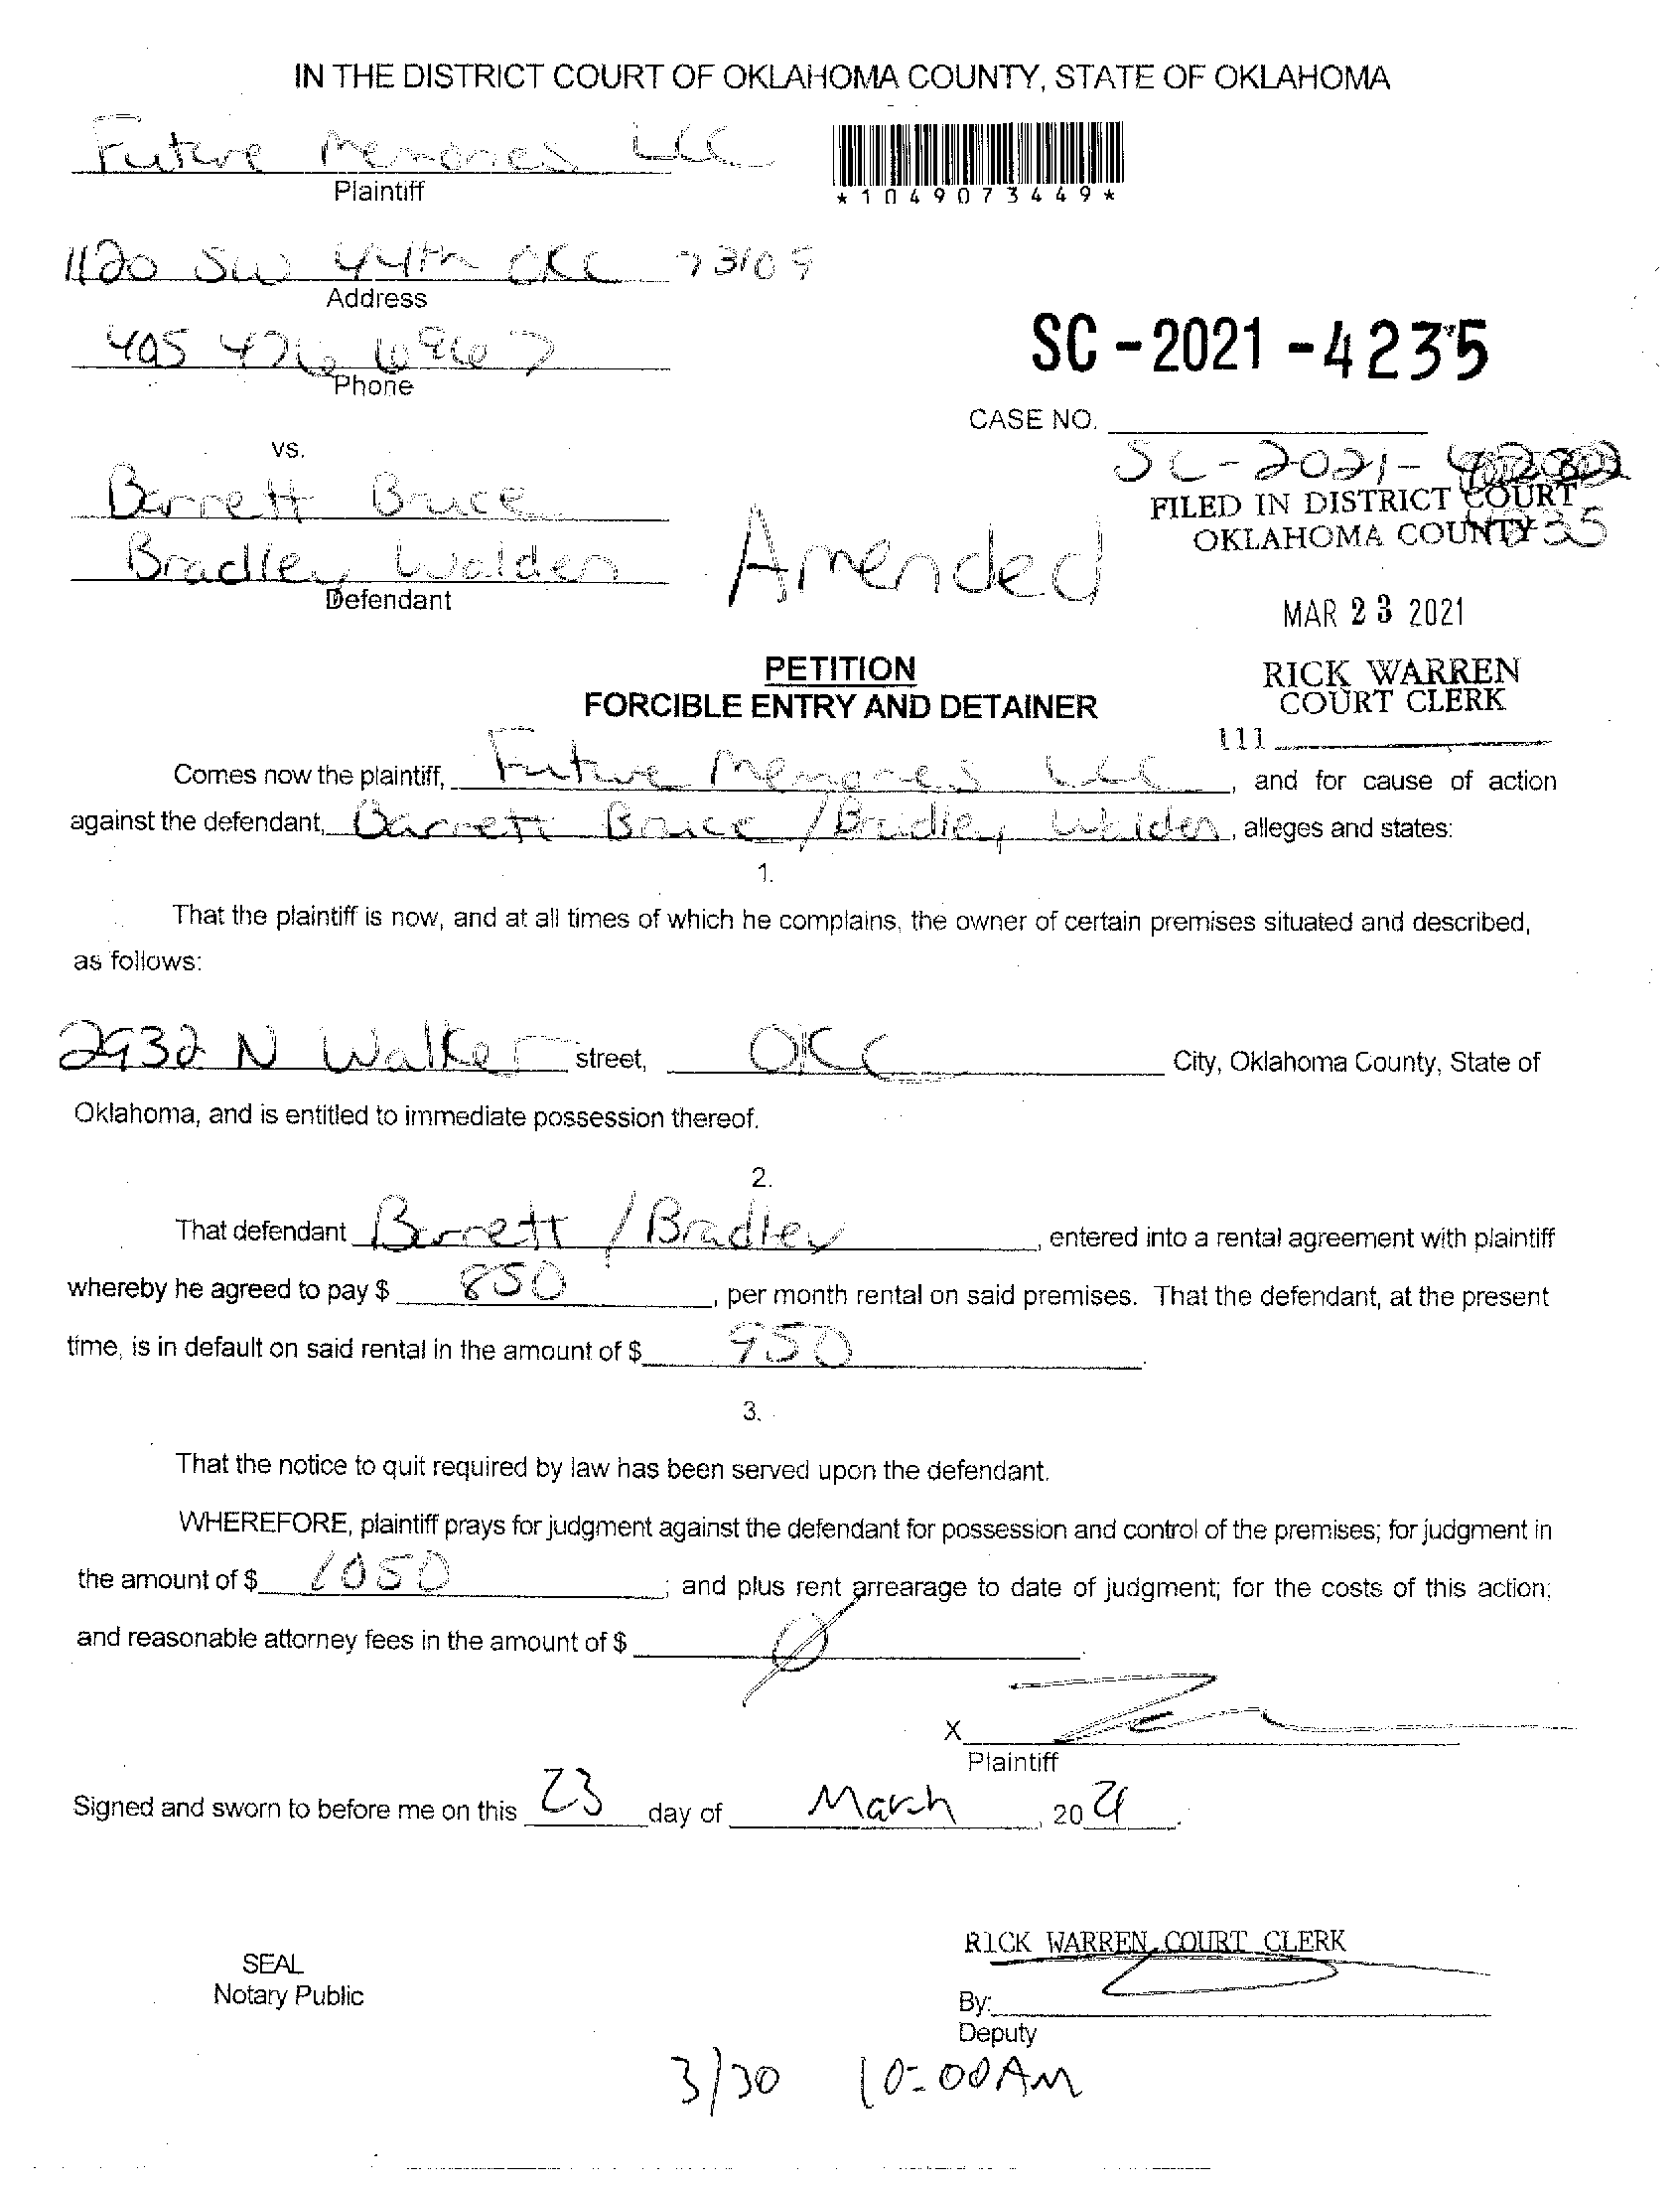 IN THE DISTRICT COURT OF OKLAHOMA COUNTY, STATE OF OKLAHOMA
Future Memories LLC
Plaintiff
*1049073449*
1120 SW 44th OKC 73109
Address
405 476 6967
Phone
SC-2021-4235
CASE NO.
SC-2021-
4235
vs.
Barrett Bruce
Bradley Walden
Defendant
Amended
FILED IN DISTRICT COURT
OKLAHOMA COUNTY
MAR 23 2021
RICK WARREN
COURT CLERK
111
PETITION
FORCIBLE ENTRY AND DETAINER
Comes now the plaintiff, Future Memories LLC, and for cause of action
against the defendant, Barrett Bruce / Bradley Walden, alleges and states:
1.
That the plaintiff is now, and at all times of which he complains, the owner of certain premises situated and described,
as follows:
2932 N Walker street, OKC City, Oklahoma County, State of
Oklahoma, and is entitled to immediate possession thereof.
2.
That defendant Barrett / Bradley, entered into a rental agreement with plaintiff
whereby he agreed to pay $ 850, per month rental on said premises. That the defendant, at the present
time, is in default on said rental in the amount of $ 950.
3.
That the notice to quit required by law has been served upon the defendant.
WHEREFORE, plaintiff prays for judgment against the defendant for possession and control of the premises; for judgment in
the amount of $ 1050; and plus rent arrearage to date of judgment; for the costs of this action;
and reasonable attorney fees in the amount of $ Ø.
X
Plaintiff
Signed and sworn to before me on this 23 day of March, 2021.
SEAL
Notary Public
RICK WARREN, COURT CLERK
By:
Deputy
3/30 10:00AM